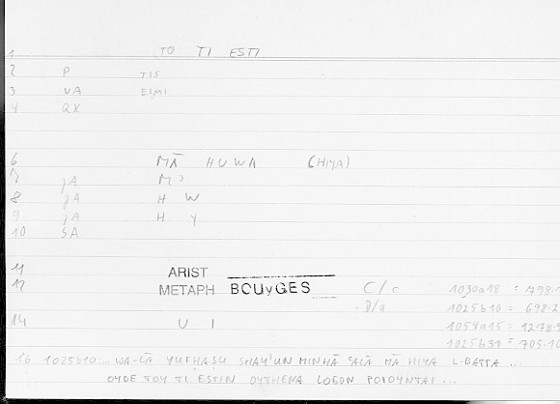 1 TO TI ESTI
2 P TIS
3 VA EIMI
4 QX
6 MĀ HUWA (HIYA)
7 JA M
8 JA H W
9 JA H Y
10 SA
11 ARIST
12 METAPH BOUYGES C/c 1030a18 = 798.
D/a 1025b10 = 698.2
14 U I 1054a15 = 1278.
1025b31 = 705.10
16 1025b10... WA-LĀ YUFHASU SHAY'UN MINHĀ MĀ HIYA L-BATTA ...
OYDE TOY TI ESTIN OYTHENA LOGON POIOYNTAI ...